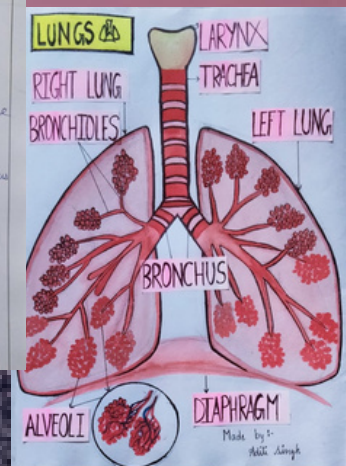 LUNGS
LARYNX
TRACHEA
RIGHT LUNG
BRONCHIOLES
LEFT LUNG
BRONCHUS
ALVEOLI
DIAPHRAGM
Made by:-
Aditi Singh